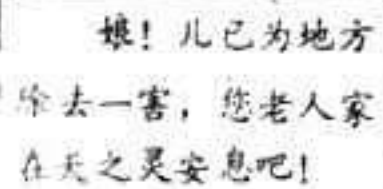 娘！儿已为地方
除去一害，您老人家
在天之灵安息吧！